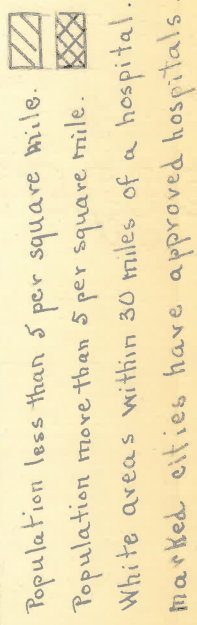 Population less than 5 per square mile.
Population more than 5 per square mile.
White areas within 30 miles of a hospital.
Marked cities have approved hospitals.